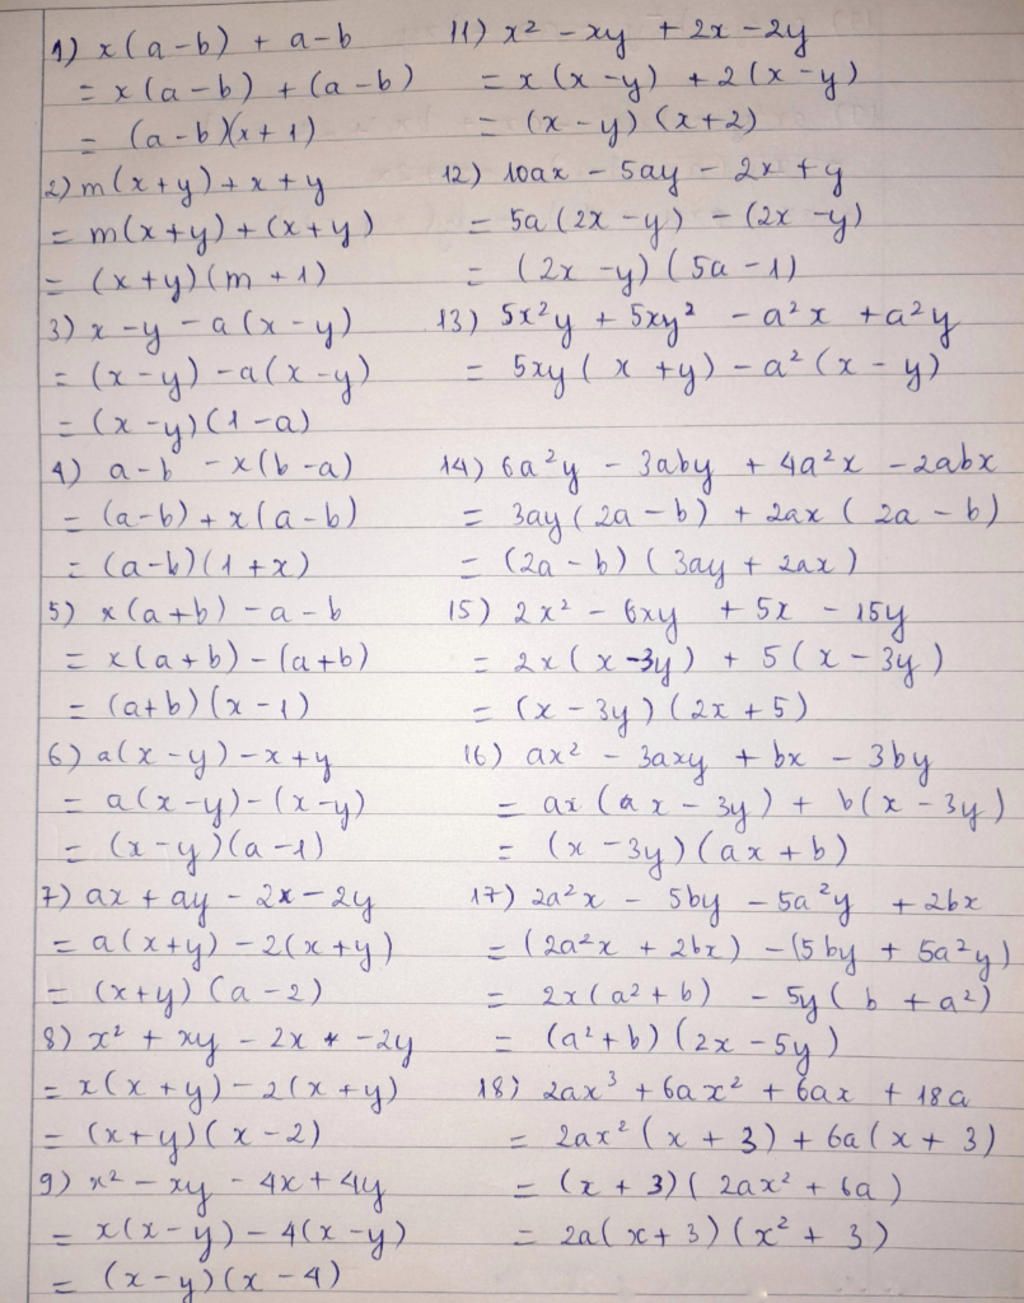 1) x(a-b) + a-b
= x(a-b) + (a-b)
= (a-b)(x+1)
2) m(x+y)+x+y
= m(x+y)+(x+y)
= (x+y)(m+1)
3) x-y-a(x-y)
= (x-y)-a(x-y)
= (x-y)(1-a)
4) a-b -x(b-a)
= (a-b)+x(a-b)
= (a-b)(1+x)
5) x(a+b)-a-b
= x(a+b)-(a+b)
= (a+b)(x-1)
6) a(x-y)-x+y
= a(x-y)-(x-y)
= (x-y)(a-1)
7) ax+ay-2x-2y
= a(x+y)-2(x+y)
= (x+y)(a-2)
8) x² + xy - 2x -2y
= x(x+y)-2(x+y)
= (x+y)(x-2)
9) x² - xy - 4x + 4y
= x(x-y)-4(x-y)
= (x-y)(x-4)
11) x² - xy + 2x - 2y
= x(x-y) + 2(x-y)
= (x-y)(x+2)
12) 10ax - 5ay - 2x + y
= 5a(2x-y) - (2x-y)
= (2x-y)(5a-1)
13) 5x²y + 5xy² - a²x + a²y
= 5xy(x+y) - a²(x-y)
14) 6a²y - 3aby + 4a²x - 2abx
= 3ay(2a-b) + 2ax(2a-b)
= (2a-b)(3ay+2ax)
15) 2x² - 6xy + 5x - 15y
= 2x(x-3y) + 5(x-3y)
= (x-3y)(2x+5)
16) ax² - 3axy + bx - 3by
= ax(ax-3y) + b(x-3y)
= (x-3y)(ax+b)
17) 2a²x - 5by - 5a²y + 2bx
= (2a²x + 2bx) - (5by + 5a²y)
= 2x(a²+b) - 5y(b+a²)
= (a²+b)(2x-5y)
18) 2ax³ + 6ax² + 6ax + 18a
= 2ax²(x+3) + 6a(x+3)
= (x+3)(2ax²+6a)
= 2a(x+3)(x²+3)